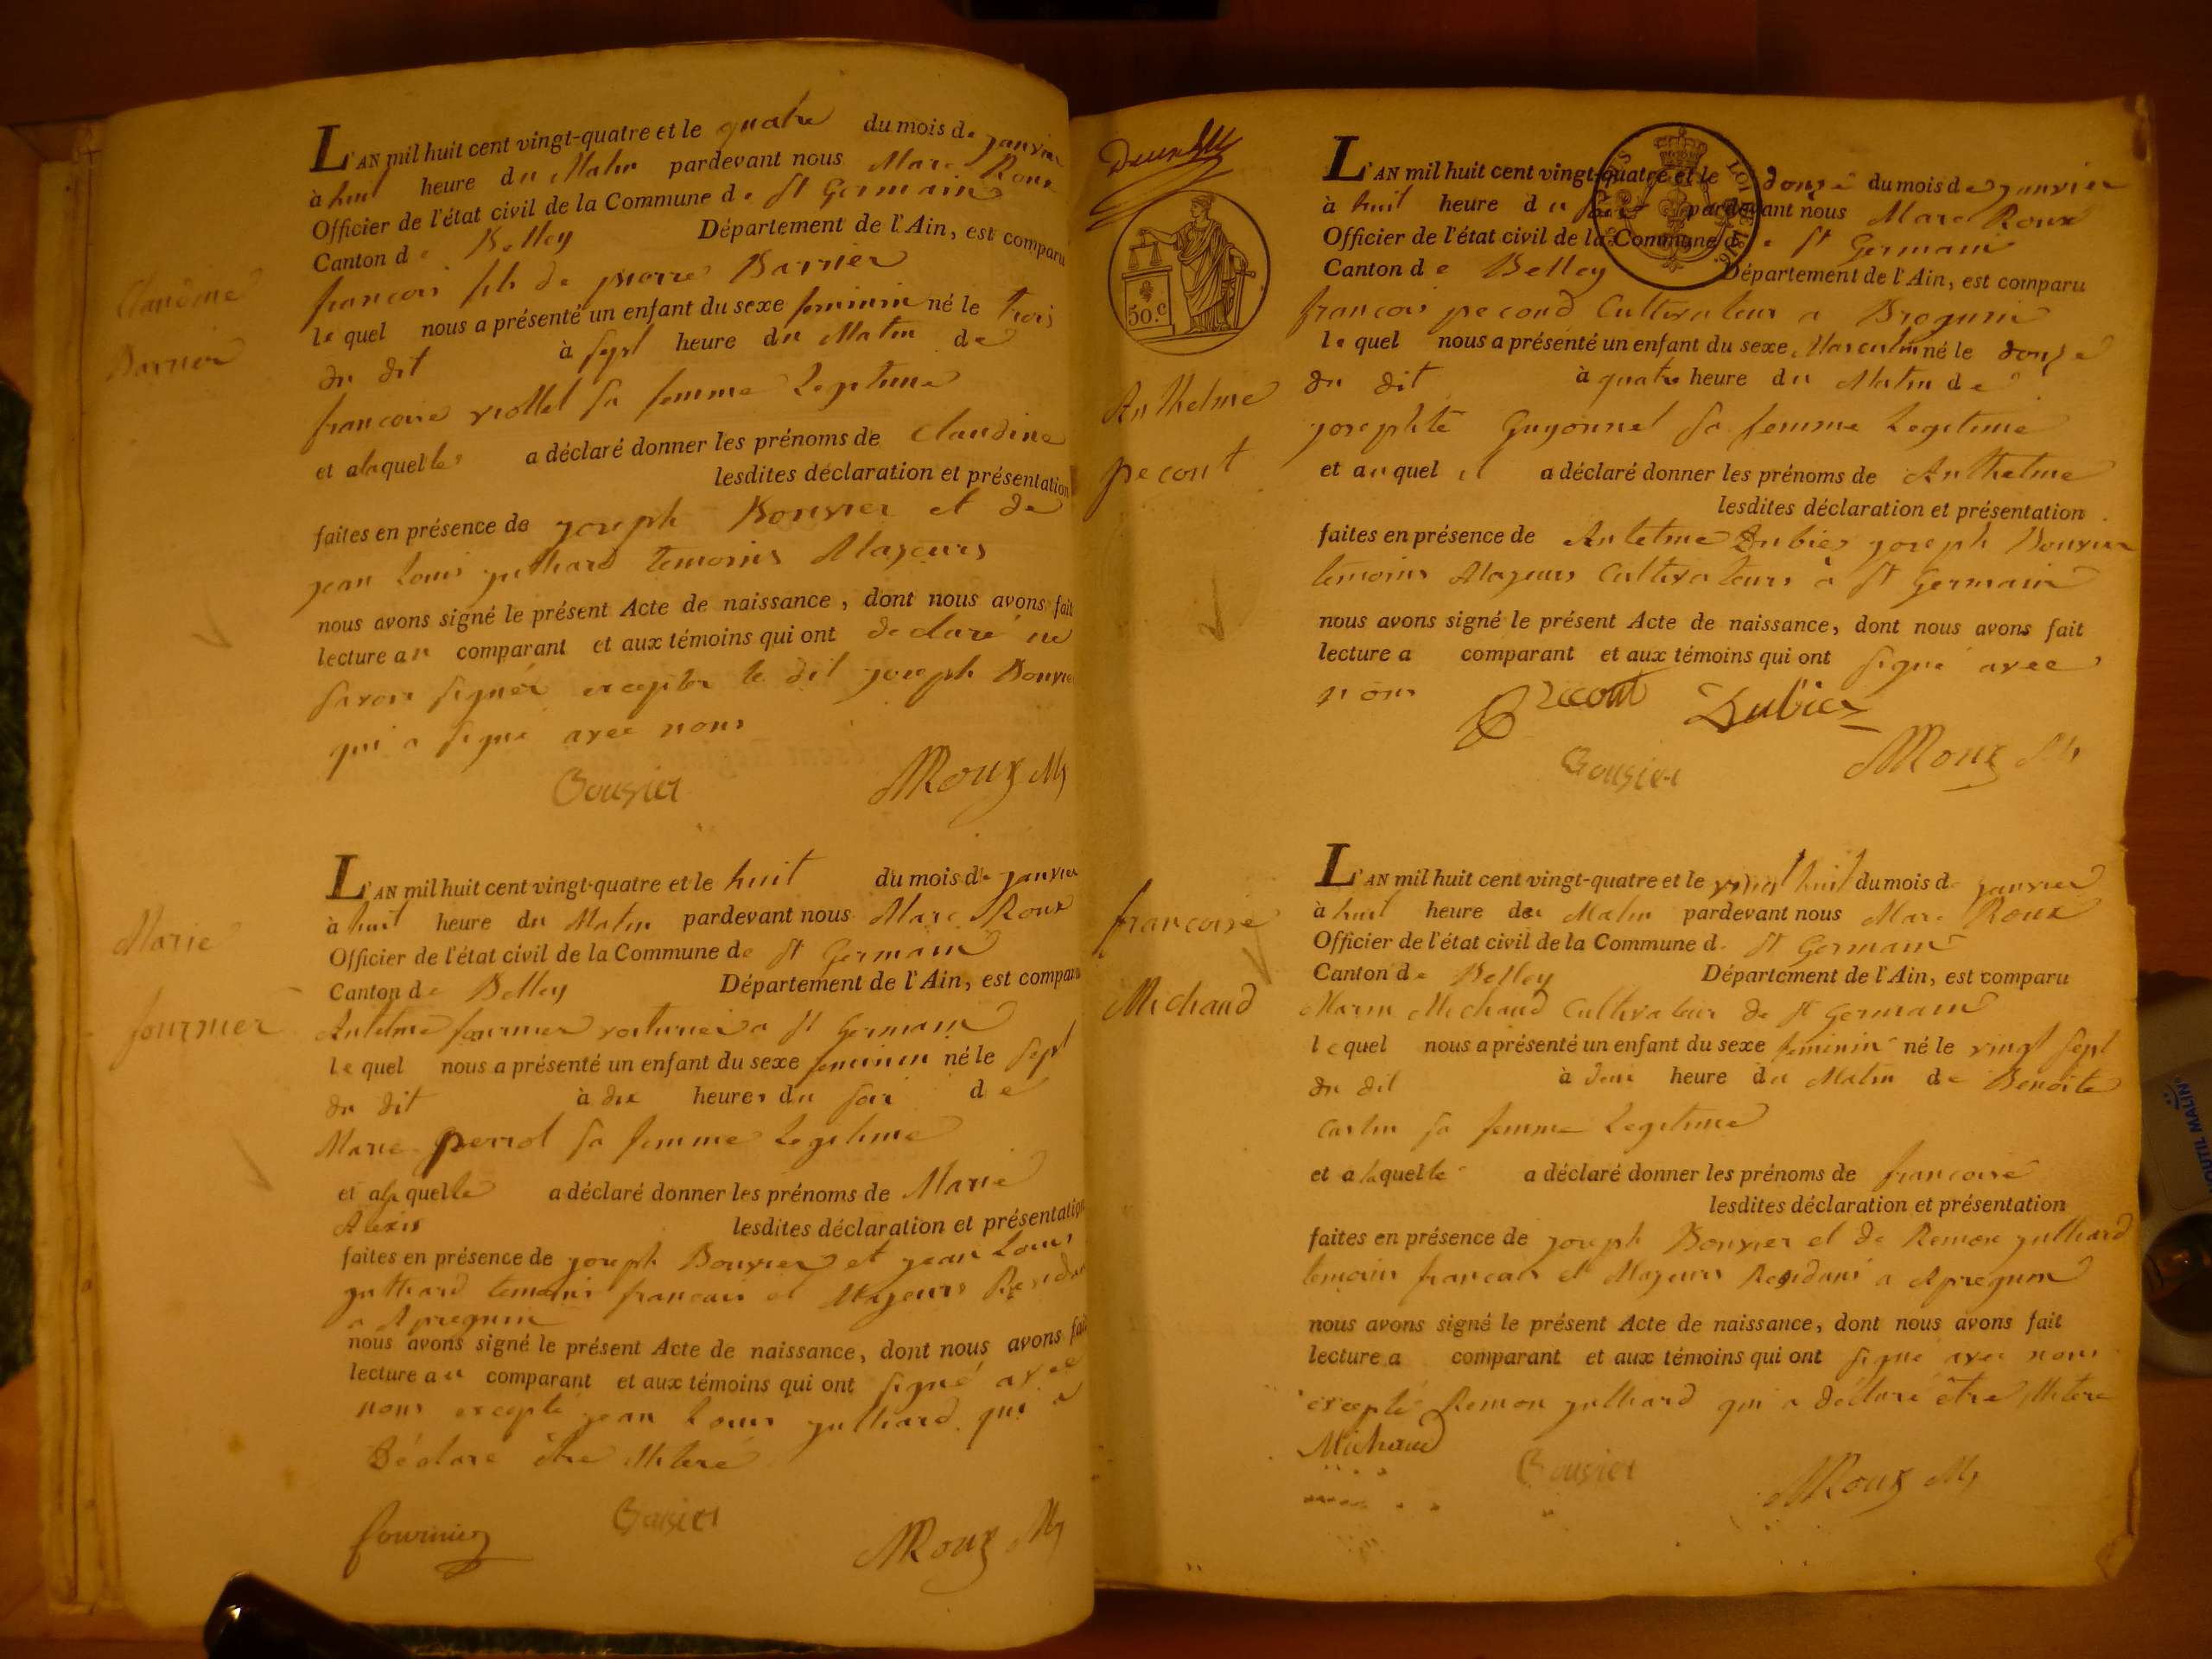 Claudine
Barrier
L'AN mil huit cent vingt-quatre et le quatre du mois de janvier
à huit heure du Matin pardevant nous Marc Roux
Officier de l'état civil de la Commune de St Germain
Canton de Belley Département de l'Ain, est comparu
francois fils de pierre Barrier
lequel nous a présenté un enfant du sexe feminin né le trois
du dit à sept heure du Matin de
francoise viollet sa femme Legitime
et a laquelle a déclaré donner les prénoms de Claudine
lesdites déclaration et présentation
faites en présence de joseph Bouvier et de
jean Louis julliard temoins Majeurs
nous avons signé le présent Acte de naissance, dont nous avons fait
lecture au comparant et aux témoins qui ont declaré ne
savoir signer excepter le dit joseph Bouvier
qui a signé avec nous
Bouvier MRoux M
Marie
fournier
L'AN mil huit cent vingt-quatre et le huit du mois de janvier
à huit heure du Matin pardevant nous Marc Roux
Officier de l'état civil de la Commune de St Germain
Canton de Belley Département de l'Ain, est comparu
Antelme fournier voiturier a St Germain
lequel nous a présenté un enfant du sexe feminin né le sept
du dit à dix heures du soir de
Marie perrol sa femme Legitime
et a la quelle a déclaré donner les prénoms de Marie
Alexis lesdites déclaration et présentation
faites en présence de joseph Bouvier et jean Louis
julliard temoins francais et Majeurs Residan
a Apregnin
nous avons signé le présent Acte de naissance, dont nous avons fait
lecture au comparant et aux témoins qui ont signé avec
nous excepté jean Louis julliard qui a
Déclare être illiteré
fournier Bouvier MRoux M
50.c
Anthelme
pecout
L'AN mil huit cent vingt-quatre et le douze du mois de janvier
à huit heure du pardevant nous Marc Roux
Officier de l'état civil de la Commune de St Germain
Canton de Belley Département de l'Ain, est comparu
francois pecoud Cultivateur a Brognin
lequel nous a présenté un enfant du sexe Masculin né le douze
du dit à quatre heure du Matin de
josephte Guyonnet sa femme Legitime
et au quel il a déclaré donner les prénoms de Anthelme
lesdites déclaration et présentation
faites en présence de Antelme Dubiez joseph Bouvier
temoins Majeurs Cultivateurs à St Germain
nous avons signé le présent Acte de naissance, dont nous avons fait
lecture a comparant et aux témoins qui ont signé avec
nous Pecout Dubiez
Bouvier MRoux M
francoise
Michaud
L'AN mil huit cent vingt-quatre et le vingt huit du mois de janvier
à huit heure du Matin pardevant nous Marc Roux
Officier de l'état civil de la Commune d. St Germain
Canton de Belley Département de l'Ain, est comparu
Marin Michaud Cultivateur de St Germain
lequel nous a présenté un enfant du sexe feminin né le vingt sept
du dit à heure du Matin de Benoite
Castin sa femme Legitime
et a laquelle a déclaré donner les prénoms de francoise
lesdites déclaration et présentation
faites en présence de joseph Bouvier et de Remon julliard
temoins francais et Majeurs Residans a Apregnin
nous avons signé le présent Acte de naissance, dont nous avons fait
lecture a comparant et aux témoins qui ont signé avec nous
excepté Remon julliard qui a déclaré être illiteré
Michaud Bouvier MRoux M
OUTIL MALIN